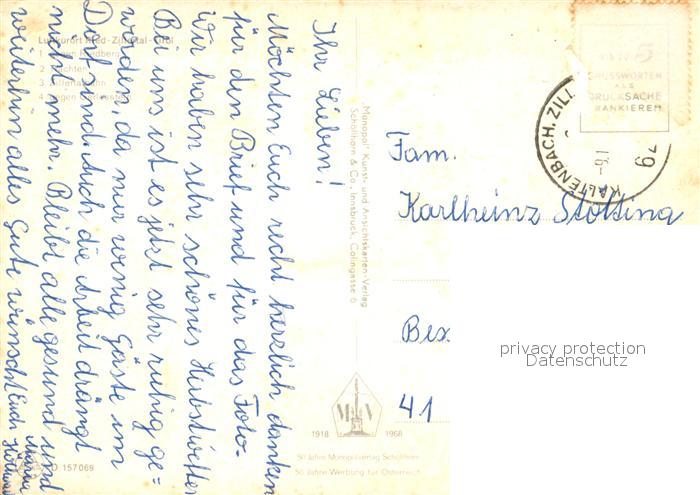 Luftkurort Ried - Zillertal - Tirol
3 Zillertalbahn
Ihr Lieben!
Möchten Euch recht herzlich danken
für den Brief und für das Foto.
Wir haben sehr schönes Herbstwetter
Bei uns ist es jetzt sehr ruhig ge-
worden, da nur wenig Gäste im
Dorf sind. Auch die Arbeit drängt
nicht mehr. Bleibt alle gesund und
weiterhin alles Gute wünscht Euch
Monopol" Kunst- und Ansichtskarten-Verlag
Schöllhorn & Co., Innsbruck, Colingasse 6
1918 1968
50 Jahre Monopolverlag Schöllhorn
50 Jahre Werbung für Österreich
D 157069
5
GRUSSWORTEN
ALS
DRUCKSACHE
FRANKIEREN
KALTENBACH, ZILL
79
Fam.
Karlheinz Stolting
Bex
41
privacy protection
Datenschutz